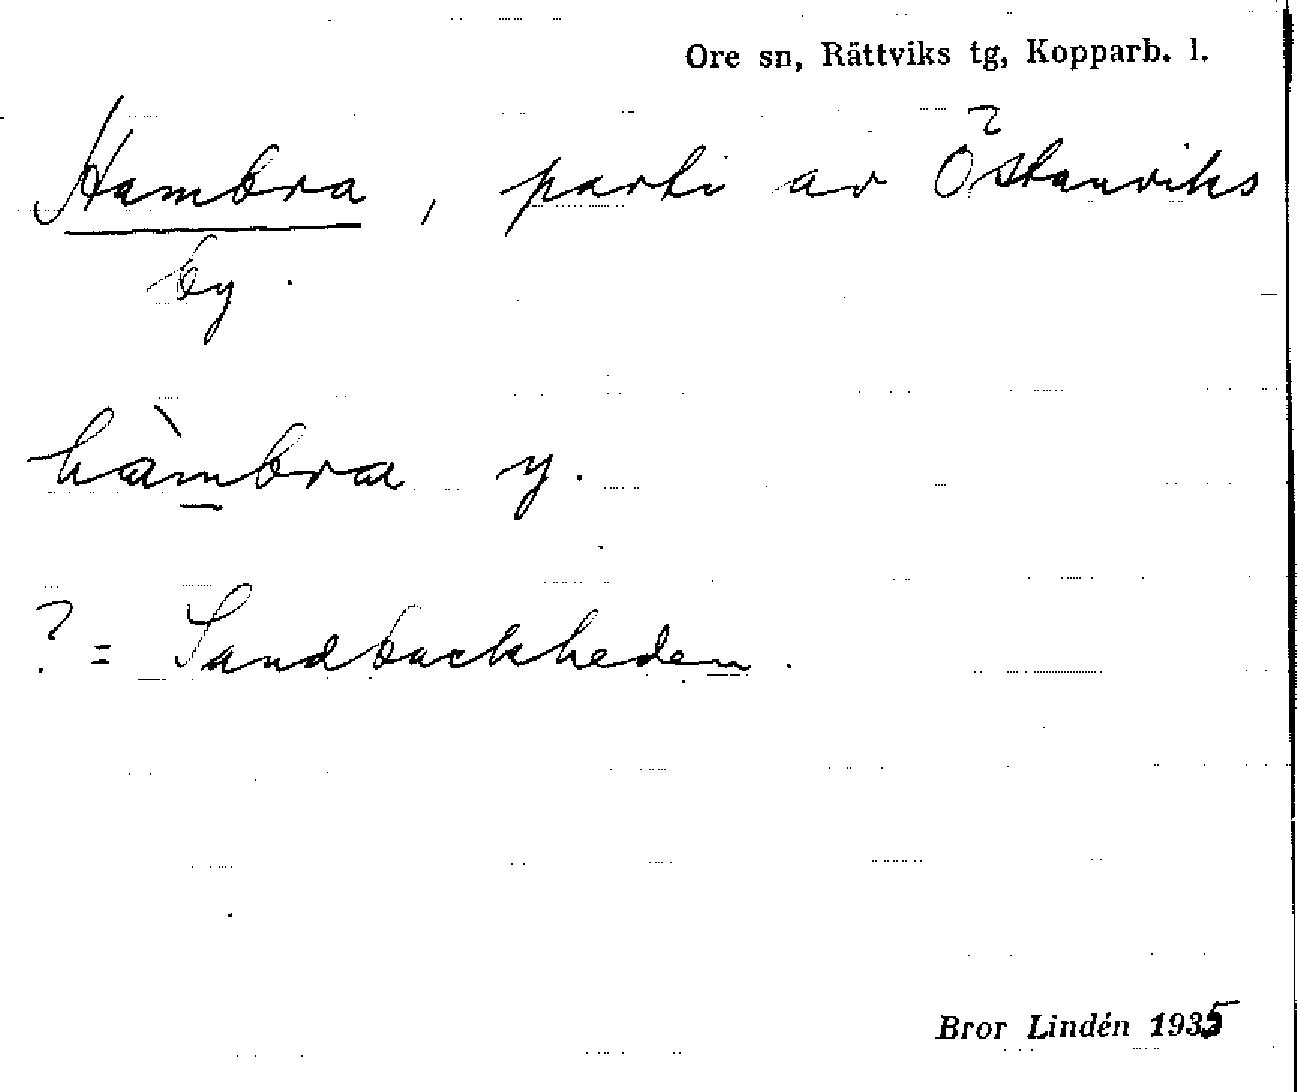 Ore sn, Rättviks tg, Kopparb. l.
Hambra, parti av Östanviks
by.
hàmbra y.
? = Sandbackheden.
Bror Lindén 1935